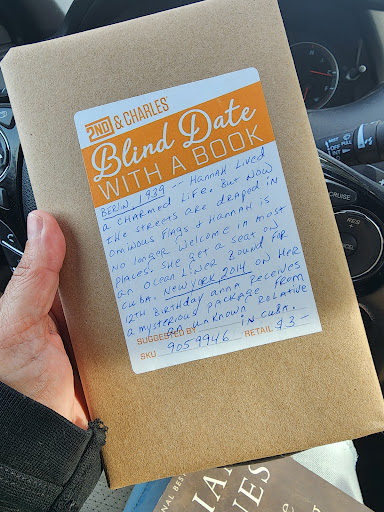 2ND & CHARLES
Blind Date
WITH A BOOK
BERLIN 1939 -- HANNAH LIVED
A CHARMED LIFE. BUT NOW
THE STREETS ARE DRAPED IN
OMINOUS FLAGS & HANNAH IS
NO LONGER WELCOME IN MOST
PLACES. SHE GET A SEAT ON
AN OCEAN LINER BOUND FOR
CUBA. NEW YORK 2014 ON HER
12TH BIRTHDAY ANNA RECEIVES
A MYSTERIOUS PACKAGE FROM
AN UNKNOWN RELATIVE
SUGGESTED BY IN CUBA.
SKU 9059946 RETAIL $3-
CRUISE
RES
CANCEL